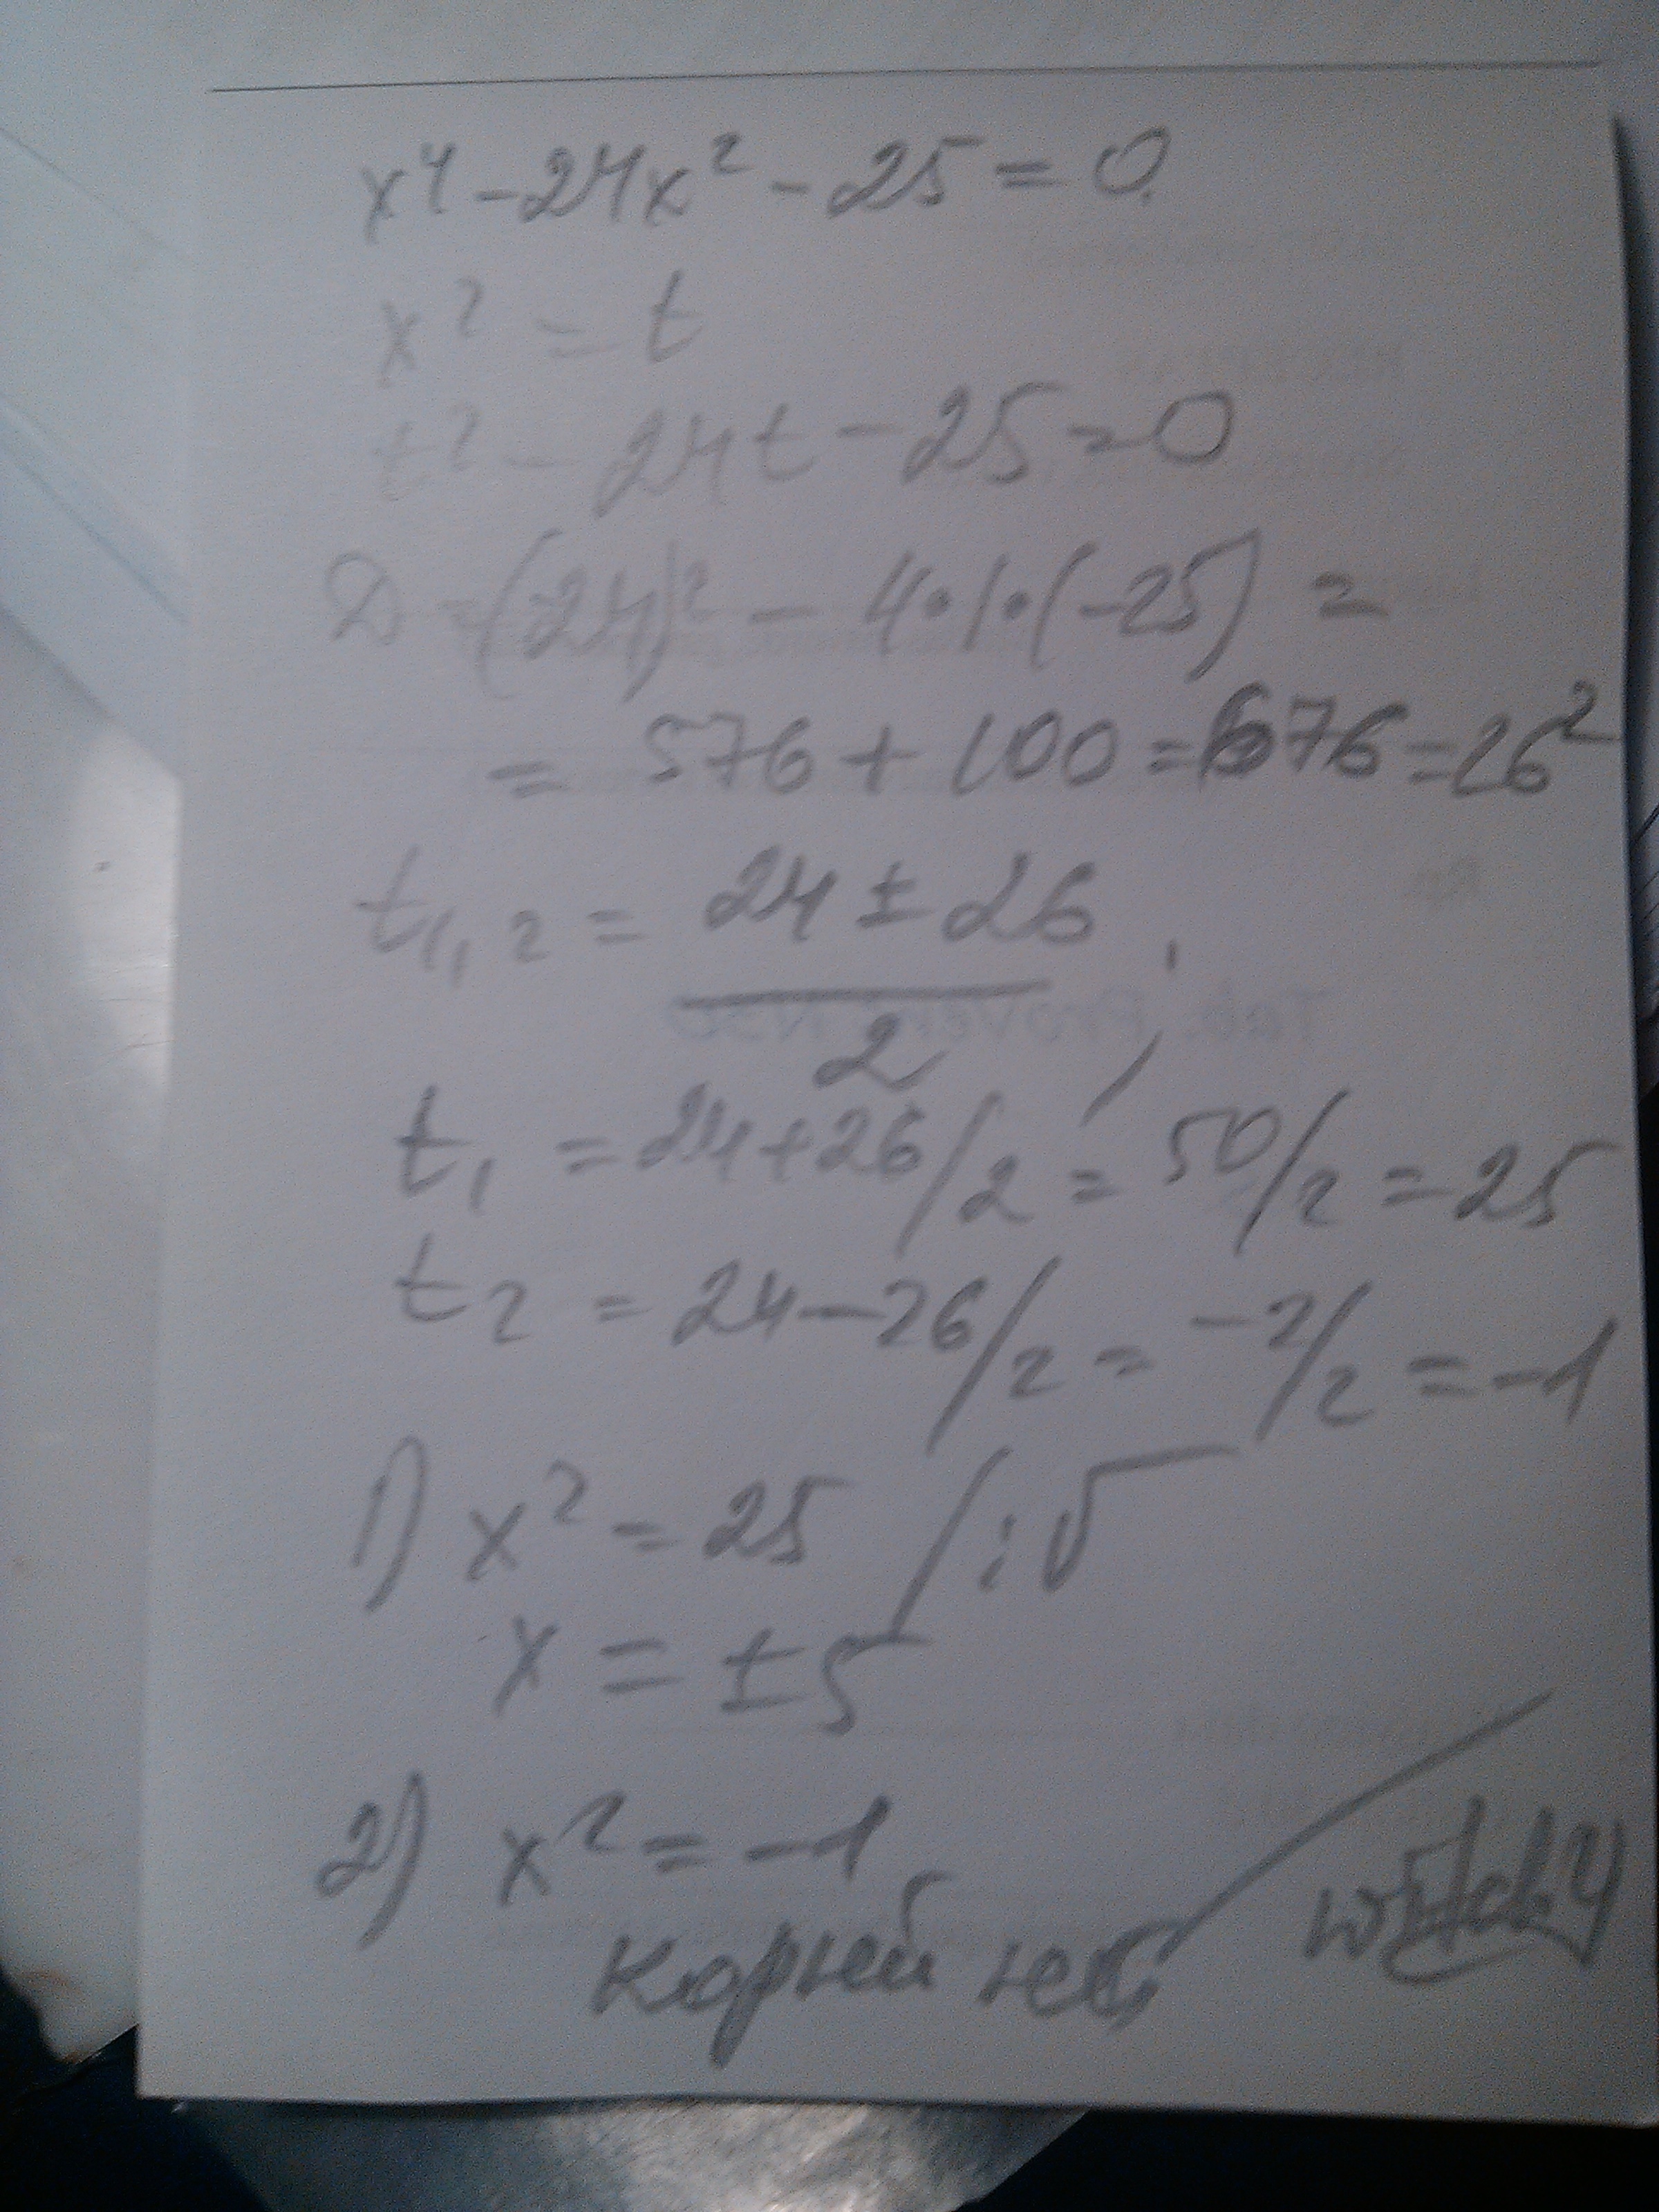 x⁴ - 24x² - 25 = 0
x² = t
t² - 24t - 25 = 0
D = (24)² - 4·1·(-25) =
= 576 + 100 = 676 = 26²
t₁,₂ = (24 ± 26)/2 ;
t₁ = 24+26/2 = 50/2 = 25
t₂ = 24-26/2 = -2/2 = -1
1) x² = 25 /:√
x = ±5
2) x² = -1
корней нет